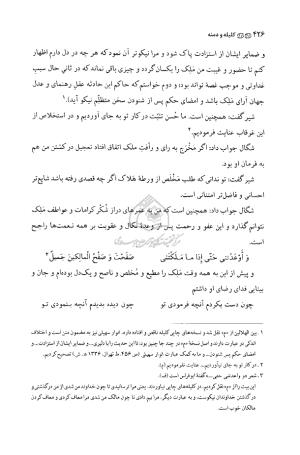 ۴۲۶ کلیله و دمنه
و ضمایر ایشان از استزادت پاک شود و مرا نیکوتر آن نمود که هر چه در دل دارم اظهار
کنم تا حضور و غیبت من مَلِک را یکسان گردد و چیزی باقی نماند که در ثانی حال سبب
عداوتی و موجب غصهٔ تواند بود؛ و دوم خواستم که حاکم این حادثه عقل رهنمای و عدل
جهان آرای مَلِک باشد و امضای حکم پس از شنودن سخن متظلّم نیکو آید.۱
شیر گفت: همچنین است. ما حُسن تثبّت در کار تو به جای آوردیم و در استخلاص از
این غرقاب عنایت فرمودیم.۲
شگال جواب داد: اگر مَخْرَج به رای و رأفتِ مَلِک اتفاق افتاد تعجیل در کشتن من هم
به فرمان او بود.
شیر گفت: تو ندانی که طلب مَخْلَص از ورطهٔ هلاک اگر چه قصدی رفته باشد شایع‌تر
احسانی و فاضل‌تر امتنانی است.
شگال جواب داد: همچنین است که من به عمرهای دراز شُکرِ کرامات و عواطفِ مَلِک
نتوانم گذارد و این عفو و رحمت پس از وعدهٔ نکال و عقوبت بر همه نعمت‌ها راجح
است.
وَ أَوعَدتَنی حَتّی إِذا مـا مَـلَکتَنی صَفَحْتَ وَ صَفْحُ المالِکینَ جَمیلُ۳
و پیش از این به همه وقت مَلِک را مطیع و مخلص و ناصح و یک‌دل بوده‌ام و جان و
بینایی فدای رضای او داشتم
چون دست بکردم آنچه فرمودی تو چون دیده بدیدم آنچه بنمودی تو
۲. در کار تو به جای نیاوردیم... عنایت نفرمودیم (م).
مالکان خوب است.